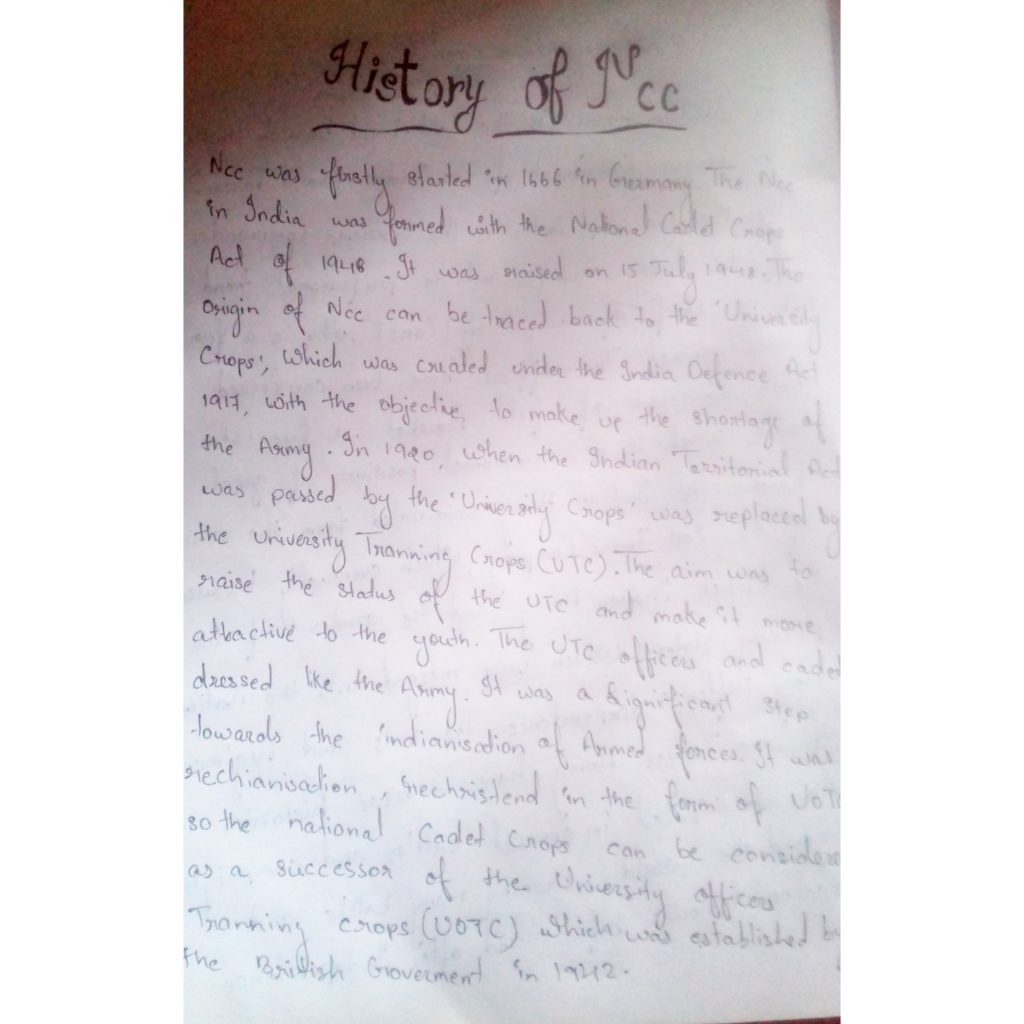 History of Ncc
Ncc was firstly started in 1666 in Germany The Ncc
in India was formed with the National Cadet Crops
Act of 1948. It was raised on 15 July 1948. The
Origin of Ncc can be traced back to the 'University
Crops', Which was created under the India Defence Act
1917, with the objective, to make up the shortage of
the Army. In 1920, when the Indian Territorial Act
was passed by the 'University Crops' was replaced by
the University Tranning Crops (UTC). The aim was to
raise the status of the UTC and make it more
attractive to the youth. The UTC officers and cadet
dressed like the Army. It was a Significant Step
towards the indianisation of Armed forces. It was
rechianisation, rechristend in the form of UOTC
so the national Cadet Crops can be considere
as a successor of the University officers
Tranning crops (UOTC) which was established by
the British Goverment in 1942.